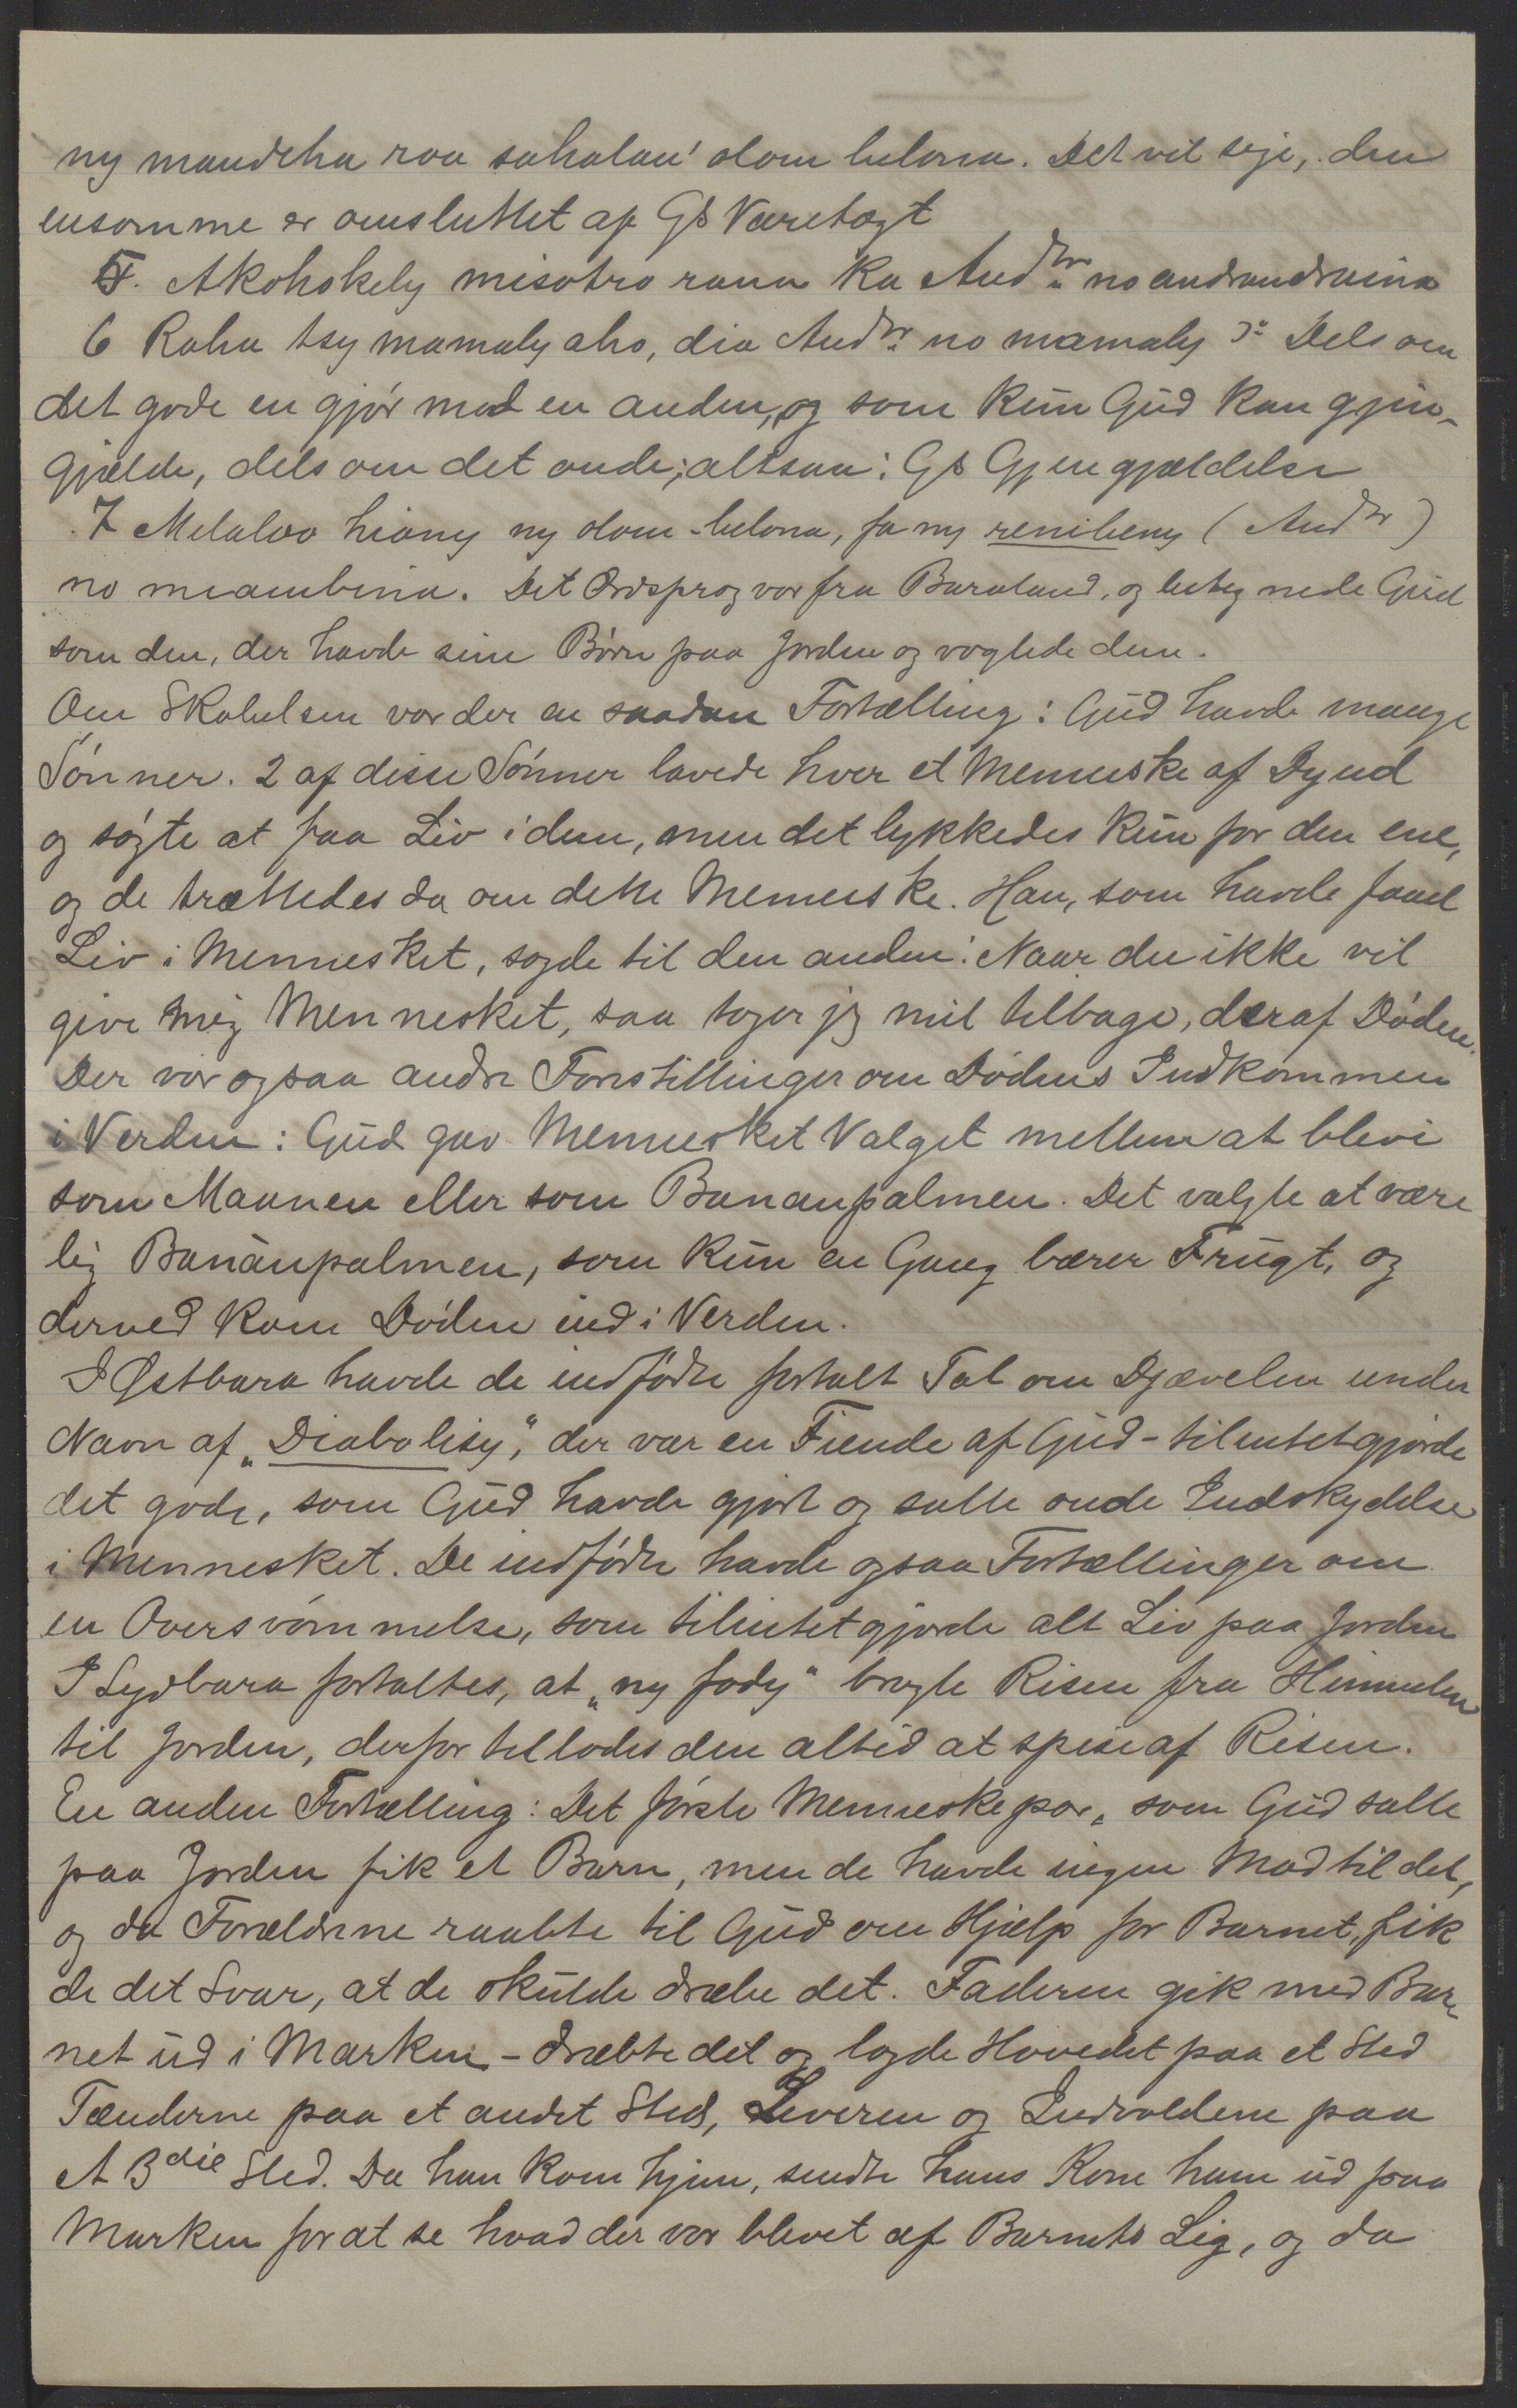 ny mandeha roa sahalan' olom belona. Det vil sige, den
ensomme er omsluttet af Gs Varetægt
5. Akohokely misotro rano ka Andr. no andrandraina
6 Raha tsy mamaly aho, dia Andr. no mamaly ɔ: Dels om
det gode en gjør mod en anden, og som kun Gud kan gjen-
gjælde, dels om det onde; altsaa: Gs Gjengjældelse
7 Milalao hiany ny olom-belona, fa ny renibeny (Andr)
no miambina. Det Ordsprog var fra Baraland, og betegnede Gud
som den, der havde sine Børn paa Jorden og vogtede dem.
Om Skabelsen var der en saadan Fortælling: Gud havde mange
Sønner. 2 af disse Sønner lavede hver et Menneske af Dynd
og søgte at faa Liv i dem, men det lykkedes kun for den ene,
og de trættedes da om dette Menneske. Han, som havde faaet
Liv i Mennesket, sagde til den anden: Naar du ikke vil
give mig Mennesket, saa tager jeg mit tilbage, deraf Døden.
Der var ogsaa andre Forestillinger om Dødens Indkommen
i Verden: Gud gav Mennesket Valget mellem at blive
som Maanen eller som Bananpalmen. Det valgte at være
lig Bananpalmen, som kun en Gang bærer Frugt, og
derved kom Døden ind i Verden.
I Østbara havde de indfødte fortalt Tal om Djævelen under
Navn af „Diabolisy", der var en Fiende af Gud - tilintetgjorde
det gode, som Gud havde gjort og satte onde Indskydelse
i Mennesket. De indfødte havde ogsaa Fortællinger om
en Oversvømmelse, som tilintetgjorde alt Liv paa Jorden
I Sydbara fortaltes, at „ny fody" bragte Risen fra Himmelen
til Jorden, derfor tillodes den altid at spise af Risen.
En anden Fortælling: Det første Menneskepar, som Gud satte
paa Jorden fik et Barn, men de havde ingen Mad til det,
og da Forældrene raabte til Gud om Hjælp for Barnet, fik
de det Svar, at de skulde dræbe det. Faderen gik med Bar-
net ud i Marken - dræbte det og lagde Hovedet paa et Sted
Tænderne paa et andet Sted, Leveren og Indvoldene paa
et 3die Sted. Da han kom hjem, sendte hans Kone ham ud paa
Marken for at se hvad der var blevet af Barnets Lig, og da